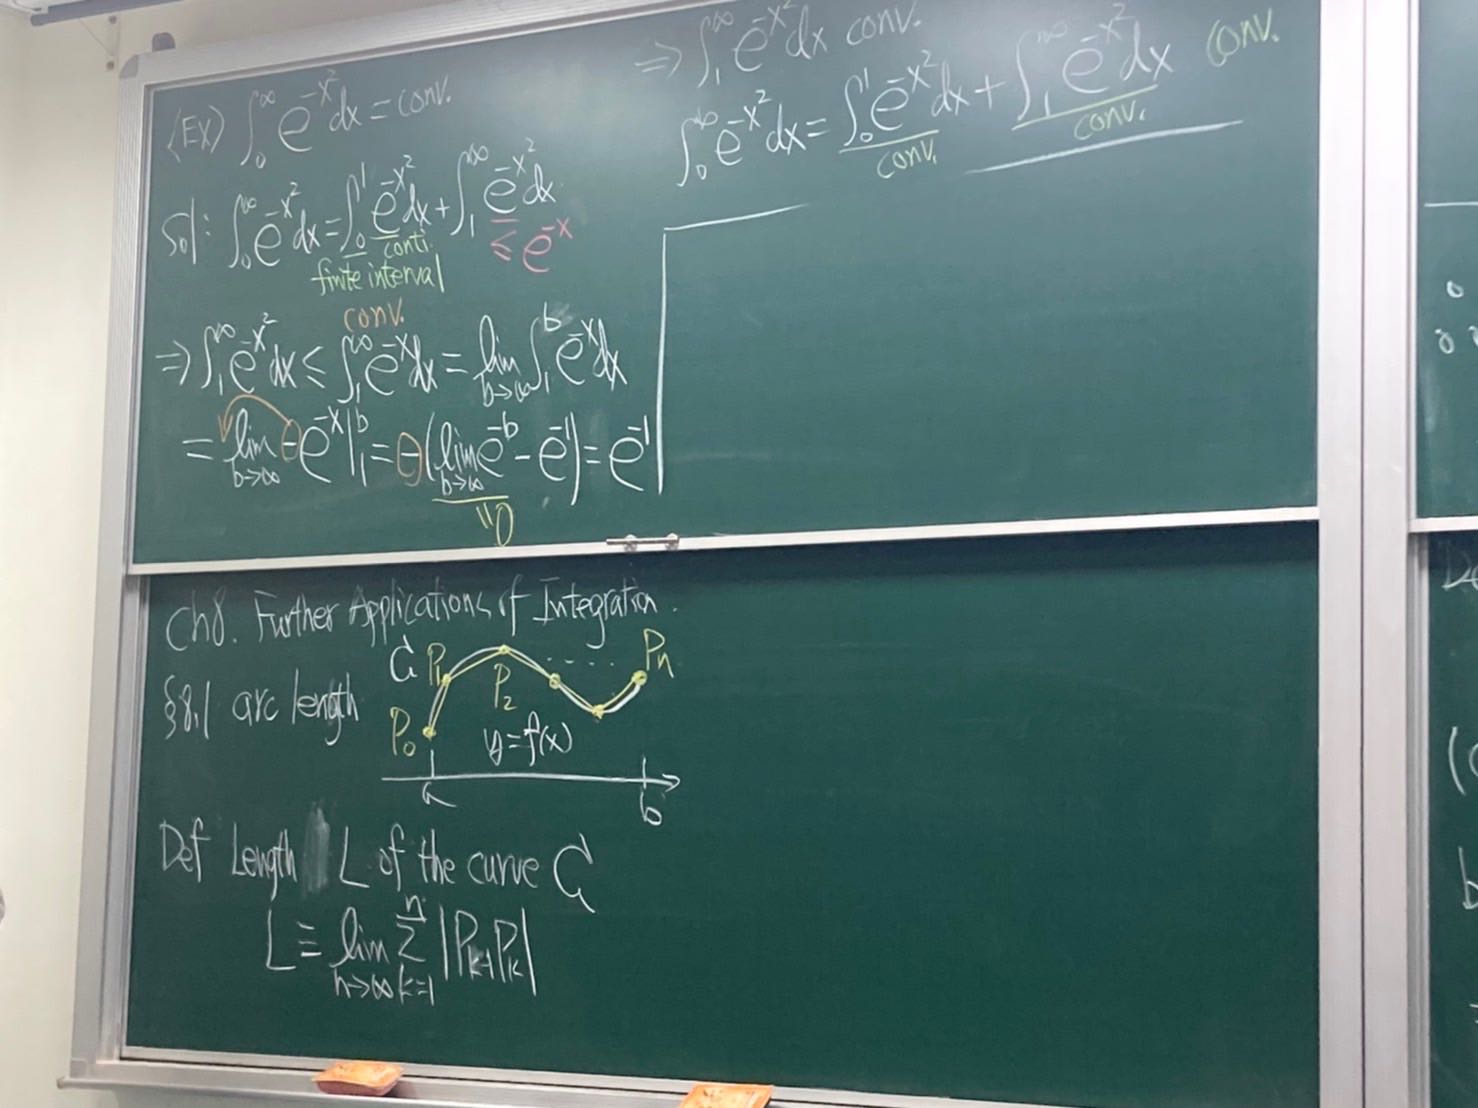 (Ex) ∫₀^∞ e^{-x²}dx = conv.
Sol: ∫₀^∞ e^{-x²}dx = ∫₀¹ e^{-x²}dx + ∫₁^∞ e^{-x²}dx
conti. ≤ e^{-x}
finite interval
conv.
⇒ ∫₁^∞ e^{-x²}dx ≤ ∫₁^∞ e^{-x}dx = lim_{b→∞} ∫₁^b e^{-x}dx
= lim_{b→∞} -e^{-x}|₁^b = -(lim_{b→∞} e^{-b} - e^{-1}) = e^{-1}
"0
⇒ ∫₁^∞ e^{-x²}dx conv.
∫₀^∞ e^{-x²}dx = ∫₀¹ e^{-x²}dx + ∫₁^∞ e^{-x²}dx conv.
conv. conv.
Ch8. Further Applications of Integration.
§8.1 arc length
C P₁ P₂ .... Pₙ
P₀ y=f(x)
a b
Def Length L of the curve C
L ≡ lim_{n→∞} Σ_{k=1}^n |P_{k-1}P_k|